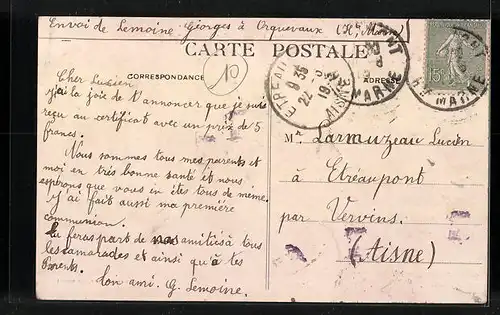 Envoi de Lemoine Georges à Orquevaux (Hte Marne)
CARTE POSTALE
CORRESPONDANCE
10
ADRESSE
ETREAUPONT
9 35
22
AISNE
MARNE
15c
Hte MARNE
Cher Lucien
j'ai la joie de t'annoncer que je suis
reçu au certificat avec un prix de 5
francs.
Nous sommes tous mes parents et
moi en très bonne santé et nous
espérons que vous en êtes tous de même.
J'ai fait aussi ma première
communion.
Tu feras part de nos amitiés à tous
les camarades et ainsi qu'à tes
Parents.
Ton ami. G. Lemoine.
Mr Larmuzeau Lucien
à Etréaupont
par Vervins.
(Aisne)